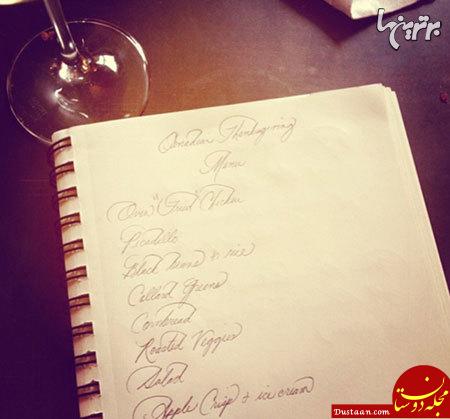 برترینها
Canadian Thanksgiving
Menu
Oven "Fried" Chicken
Picadillo
Black beans + rice
Collard Greens
Cornbread
Roasted Veggies
Salad
Apple Crisp + ice cream
مجله دوستان
Dustaan.com